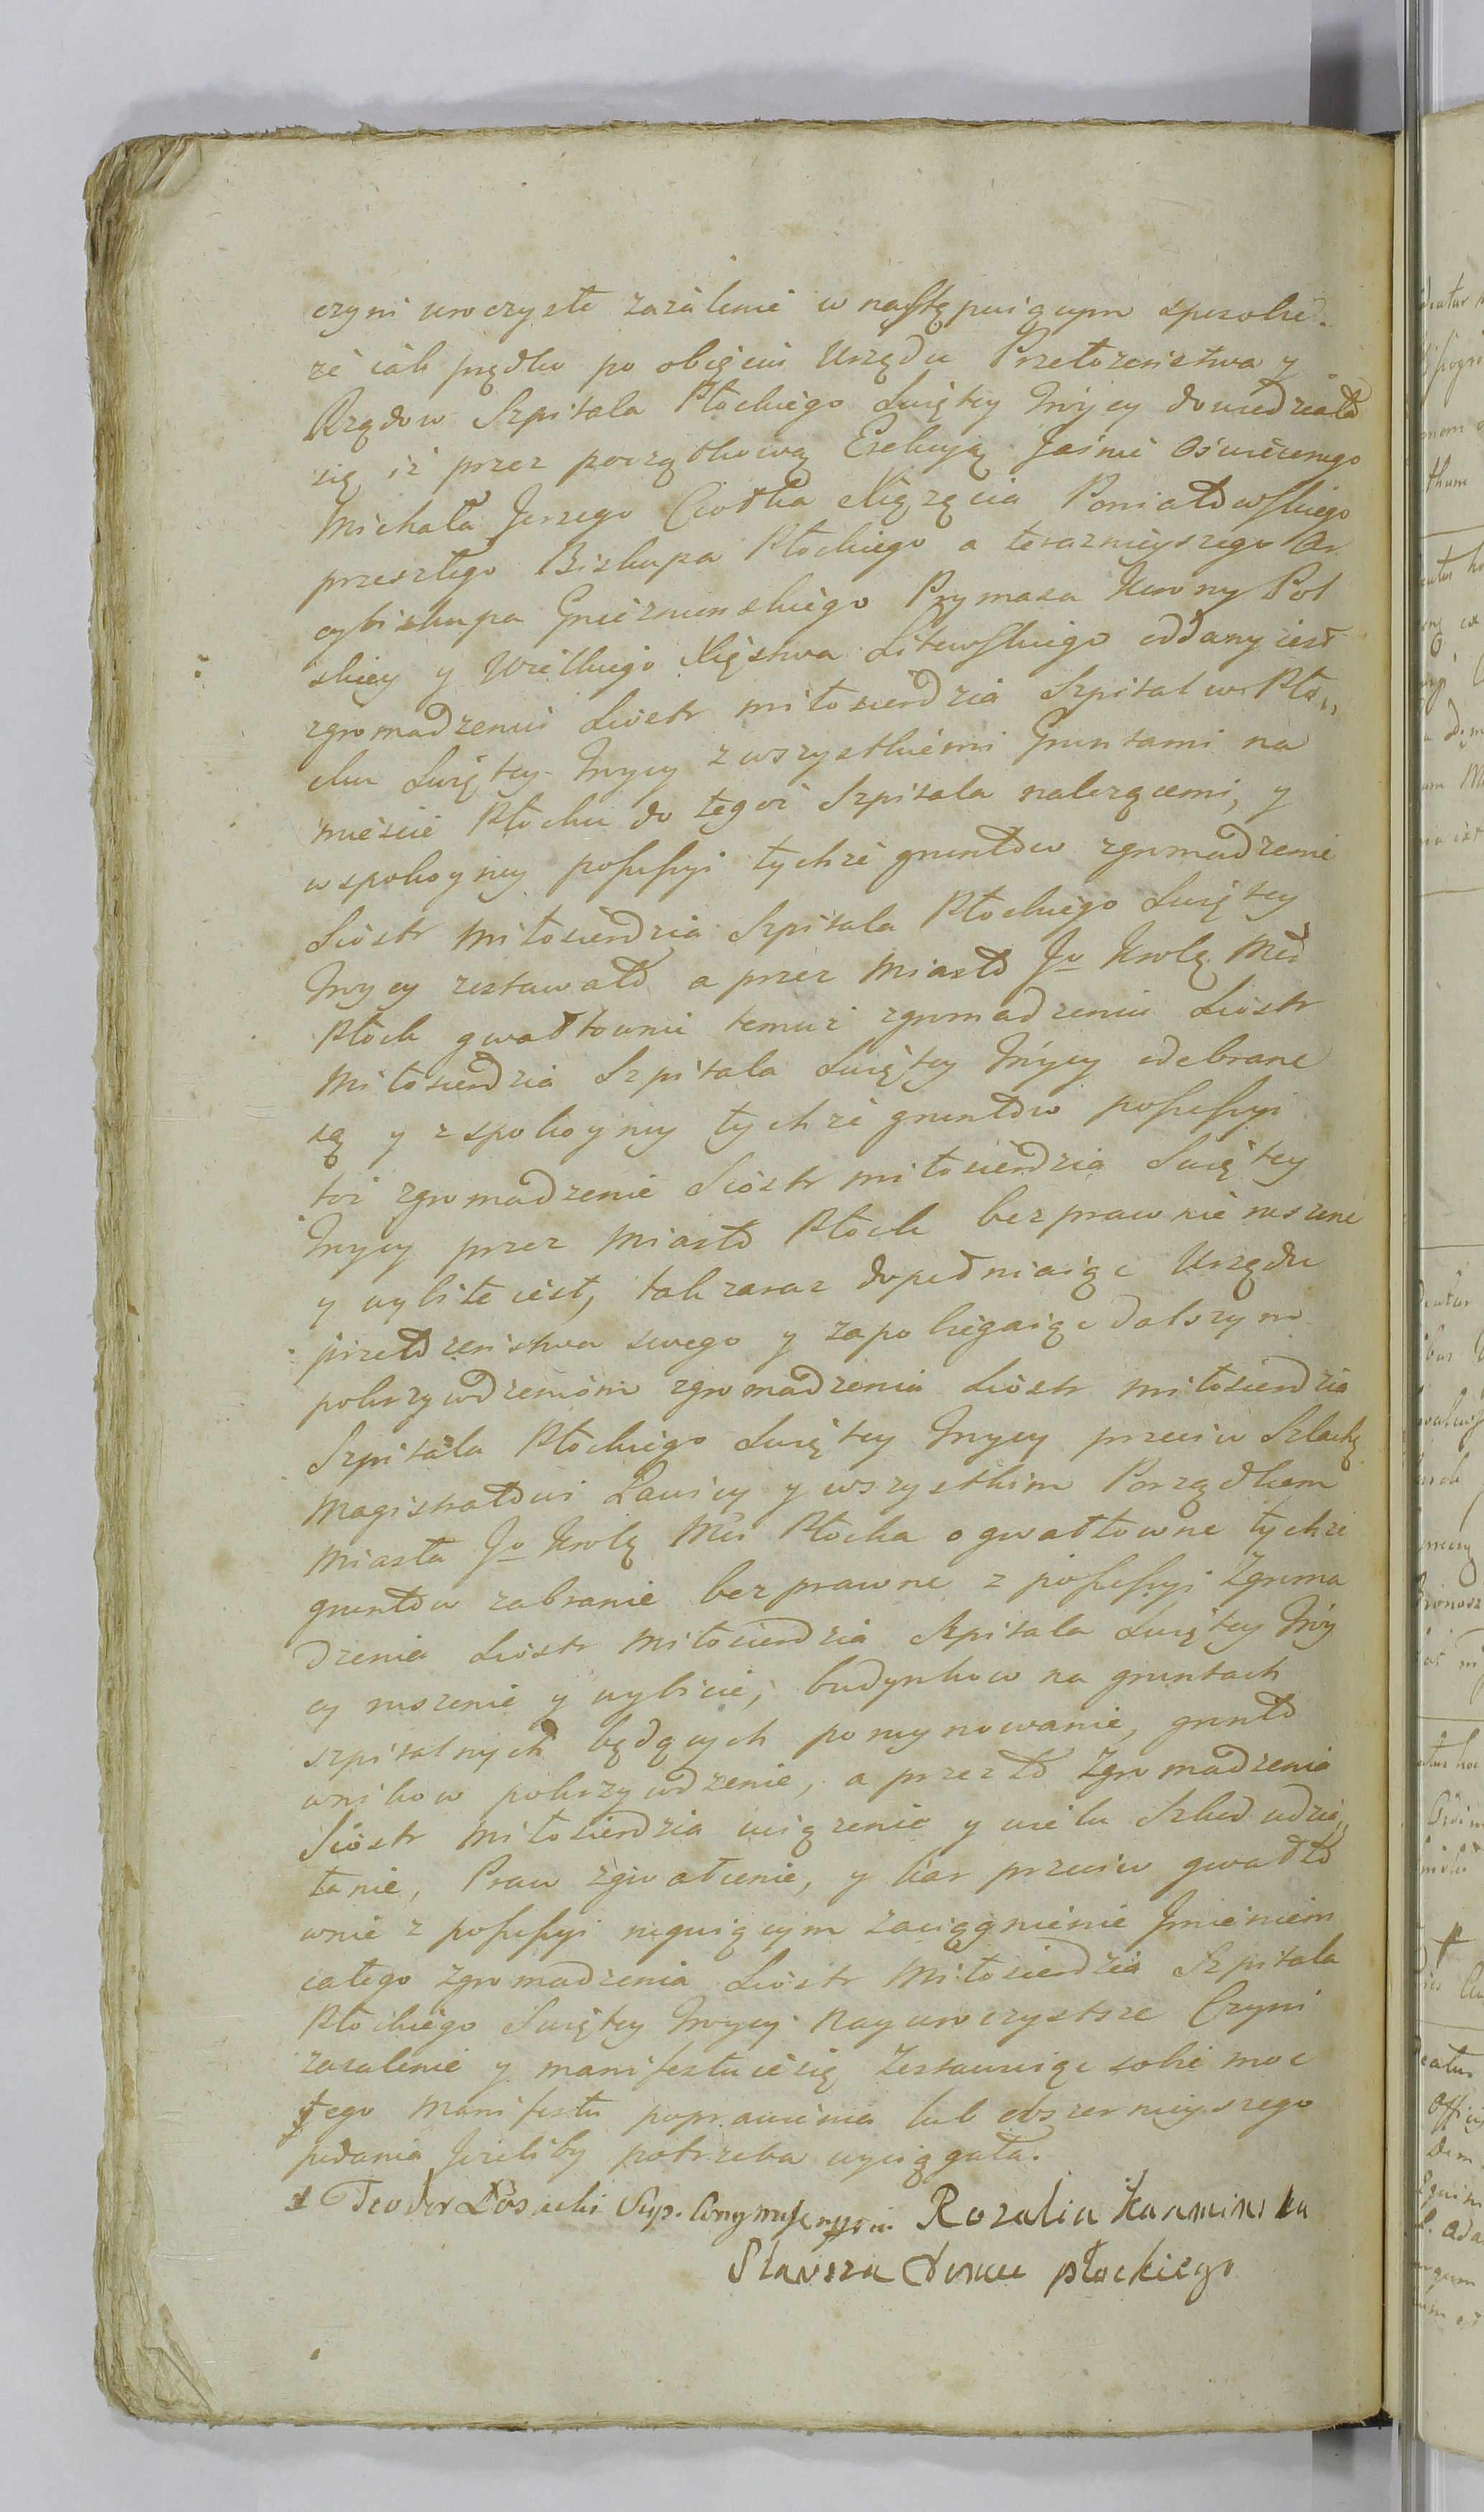 czyni uroczyste zażalenie w następuiącym sposobie.
że iak prędko po obięciu Urzędu Przełożeństwa y
Rządow Szpitala Płockiego Swiętey Tróycy dowiedziała
się iż przez porządkową Exekucyą Jaśnie Oświeconego
Michała Jerzego Ciołka Xiążęcia Poniatowskiego
przeszłego Biskupa Płockiego a teraznieyszego Ar
cybiskupa Gnieznienskiego Prymasa Korony Pol
skiey y Wielkiego Xięstwa Litewskiego oddany iest
zgromadzeniu Siostr miłosierdzia Szpital w Pło„
cku Swiętey Troycy z wszystkiemi Gruntami na
mieście Płocku do tegoż Szpitala należącemi, y
w spokoyney possessyi tychże gruntow zgromadzenie
Siostr Miłosierdzia Szpitala Płockiego Swiętey
Troycy zostawało a przez Miasto Jo Krolę Mci
Płock gwałtownie temuż zgromadzeniu Siostr
Miłosierdzia Szpitala Swiętey Troycy odebrane
są y z spokoyney tychże gruntow possessyi
toż zgromadzenie Siostr miłosierdzia Swiętey
Troycy przez Miasto Płock bezprawnie ruszone
y wybite iest, tak zaraz dopełniaiąc Urzędu
przełożeństwa swego y zapobiegaiąc dalszym
pokrzywdzeniom zgromadzenia Siostr miłosierdzia
Szpitala Płockiego Swiętey Troycy przeciw Szlachę
Magistratowi Ławicy y wszystkim Porządkom
Miasta Jo Krolę Mci Płocka o gwałtowne tychże
gruntow zabranie bezprawne z possessyi Zgroma
dzenia Siostr Miłosierdzia Szpitala Swiętey Tróy
cy ruszenie y wybicie, budynkow na gruntach
szpitalnych będących porynowanie, grunto
wnikow pokrzywdzenie, a przez to Zgromadzenia
Siostr Miłosierdzia uciążenie y wielu Szkod udzia„
łanie, Praw zgwałcenie, y kar przeciw gwałto
wnie z possessyi ruguiącym zaciągnienie Jmieniem
całego zgromadzenia Siostr Miłosierdzia Szpitala
Płockiego Swiętey Troycy nayuroczystsze Czyni
zażalenie y manifestuie się Zostawuiąc sobie moc
tego Manifestu poprawienia lub obszernieyszego
podania Jeżeliby potrzeba wyciągała.
Teodor Łosicki Sup. Rozalia Kaminska
Starsza Domu płockiego